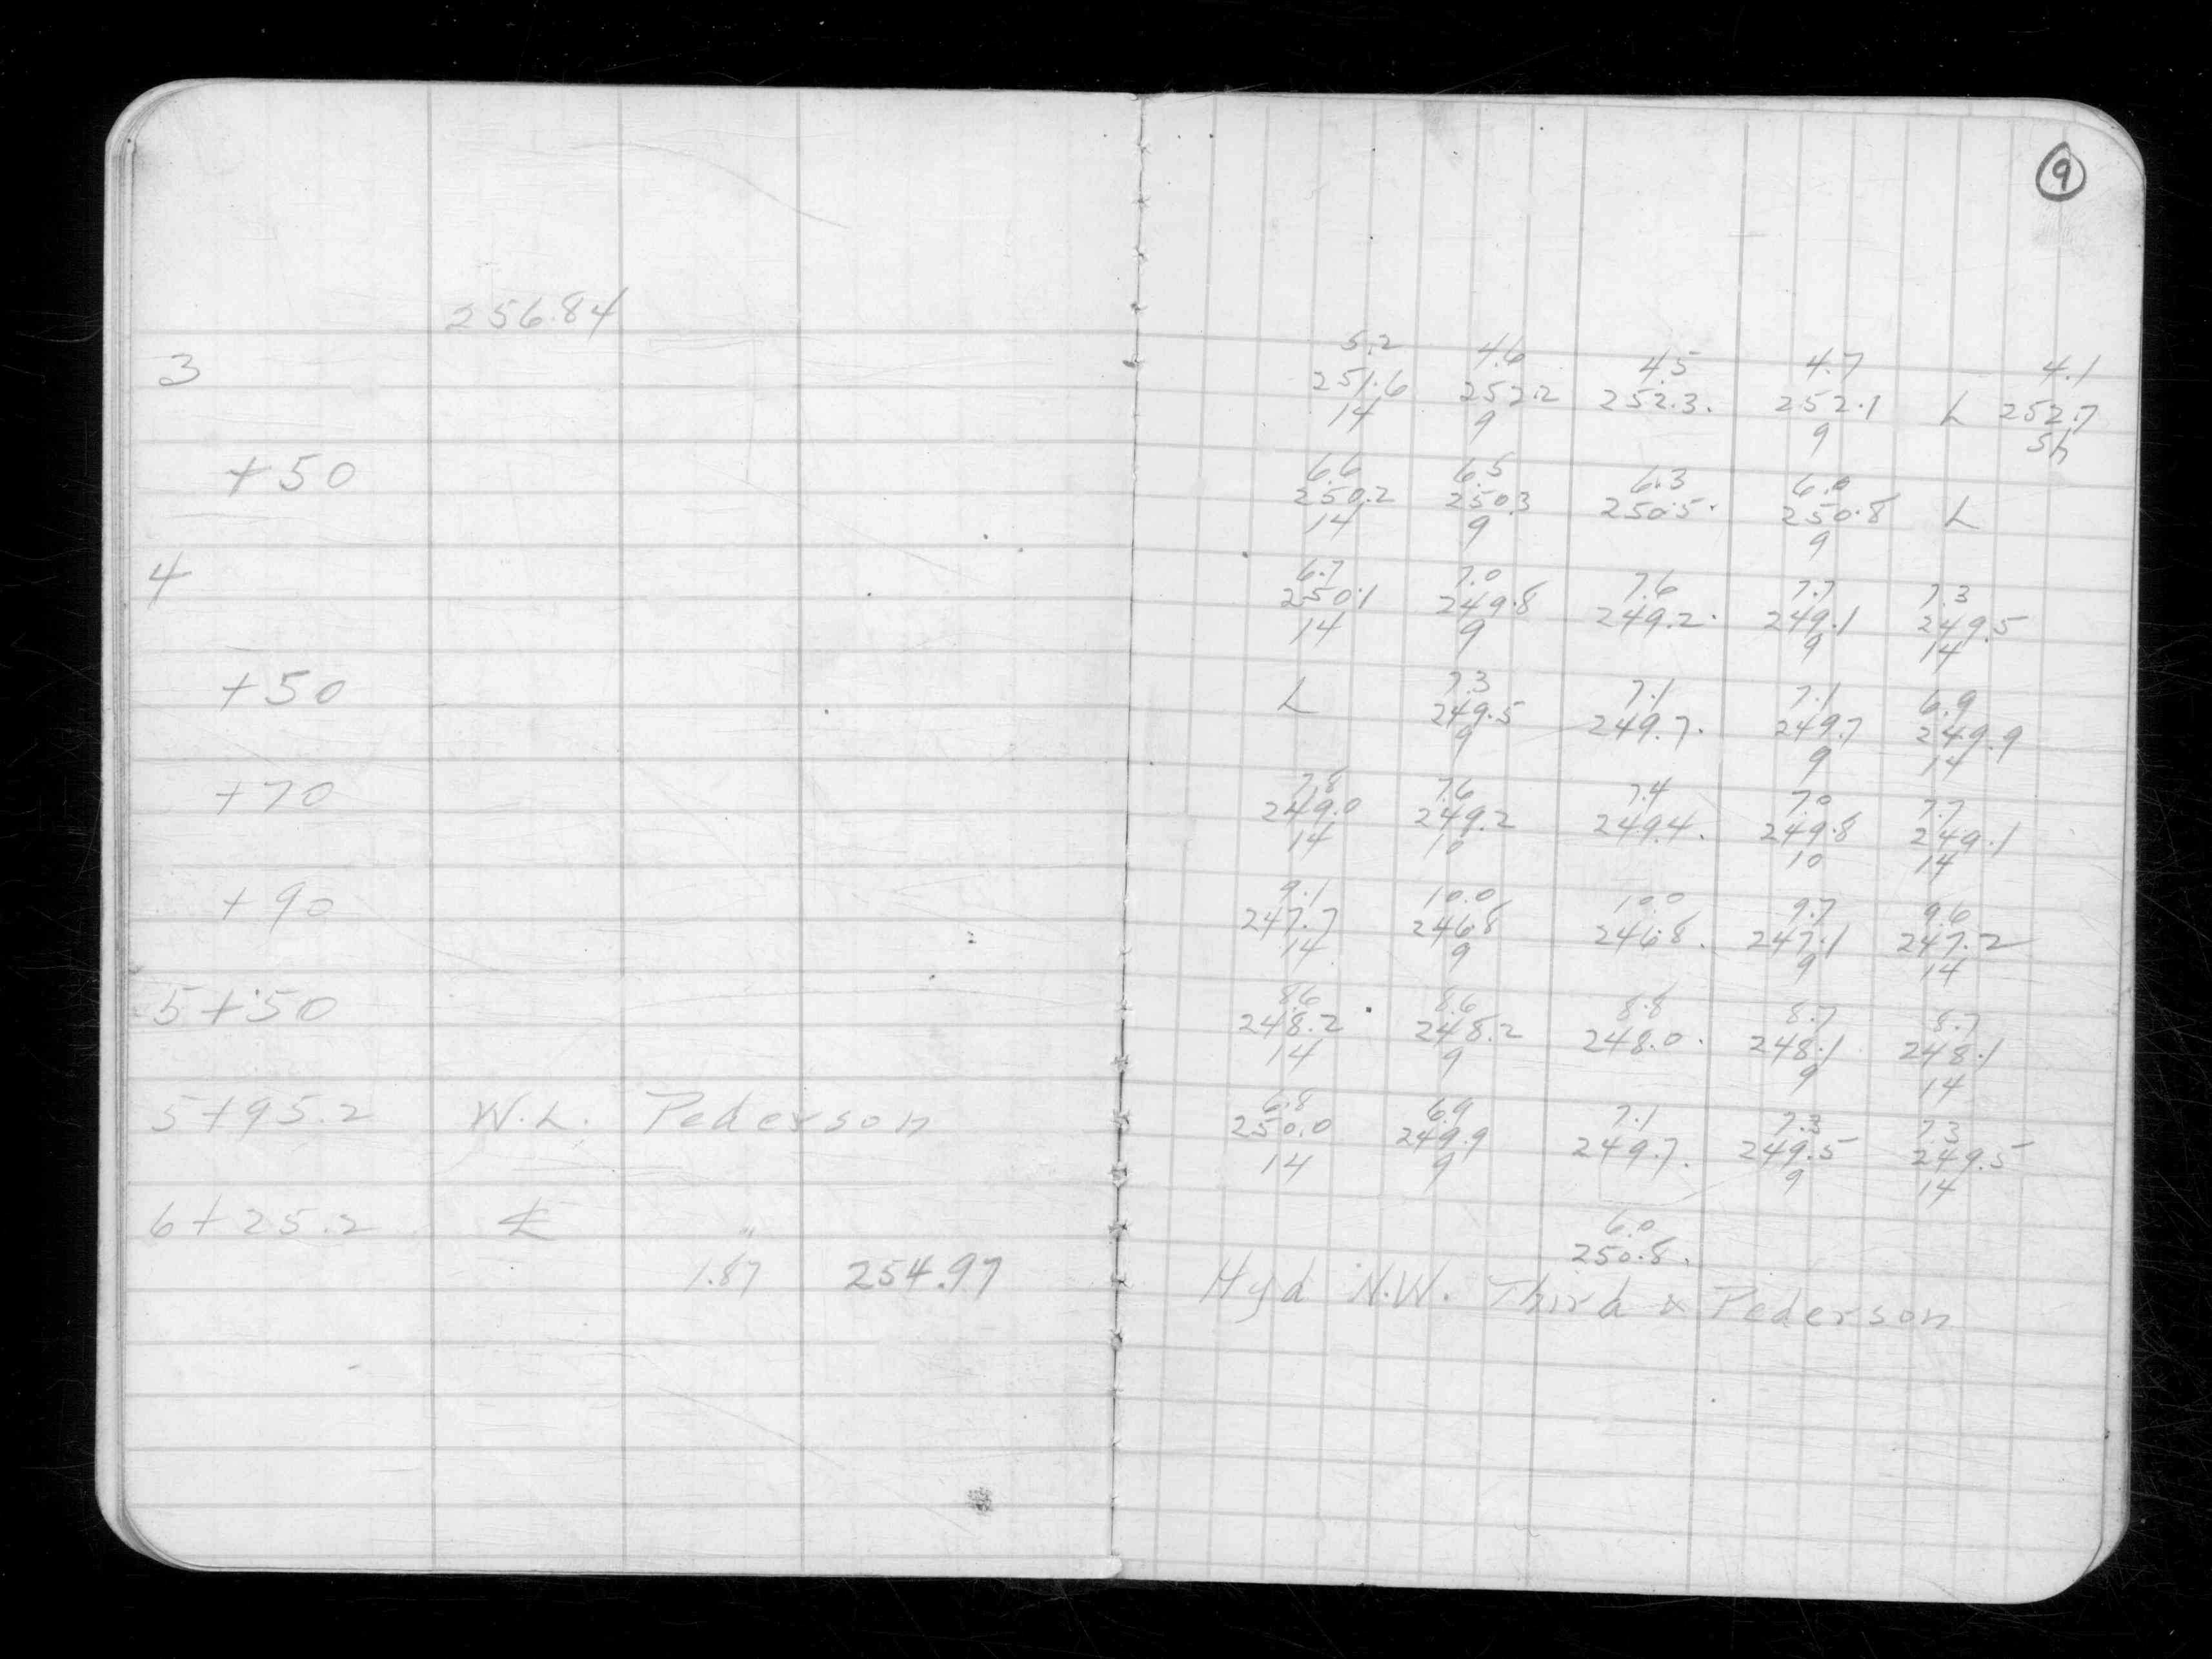 9
256.84
3
5.2 4.6 4.5 4.7 4.1
251.6 252.2 252.3. 252.1 L 252.7
14 9 9 Sh
+50
6.6 6.5 6.3 6.0
250.2 250.3 250.5. 250.8 L
14 9 9
4
6.7 7.0 7.6 7.7 7.3
250.1 249.8 249.2. 249.1 249.5
14 9 9 14
+50
7.3 7.1 7.1 6.9
L 249.5 249.7. 249.7 249.9
9 9 14
+70
7.8 7.6 7.4 7.0 7.7
249.0 249.2 249.4. 249.8 249.1
14 10 10 14
+90
9.1 10.0 10.0 9.7 9.6
247.7 246.8 246.8. 247.1 247.2
14 9 9 14
5+50
8.6 8.6 8.8 8.7 8.7
248.2 248.2 248.0. 248.1 248.1
14 9 9 14
5+95.2 W.L. Pederson
6.8 6.9 7.1 7.3 7.3
250.0 249.9 249.7. 249.5 249.5
14 9 9 14
6+25.2 ₵ "
6.0
250.8.
1.87 254.97 Hyd N.W. Third & Pederson